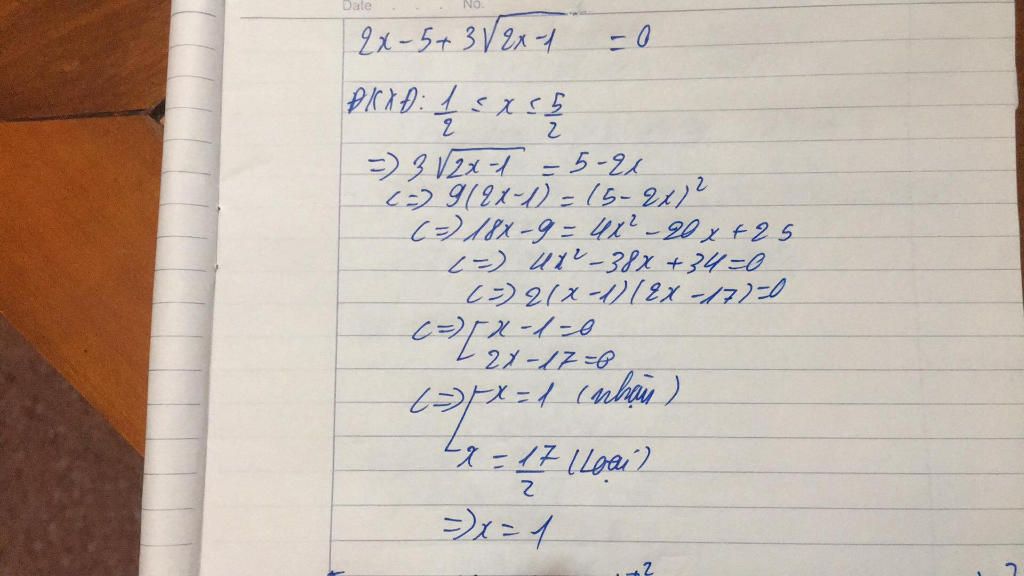 Date . . . No.
2x - 5 + 3√(2x-1) = 0
ĐKXĐ: 1/2 ≤ x ≤ 5/2
=> 3√(2x-1) = 5 - 2x
<=> 9(2x-1) = (5-2x)²
<=> 18x - 9 = 4x² - 20x + 25
<=> 4x² - 38x + 34 = 0
<=> 2(x-1)(2x-17) = 0
<=> [ x - 1 = 0
2x - 17 = 0
<=> [ x = 1 (nhận)
x = 17/2 (Loại)
=> x = 1